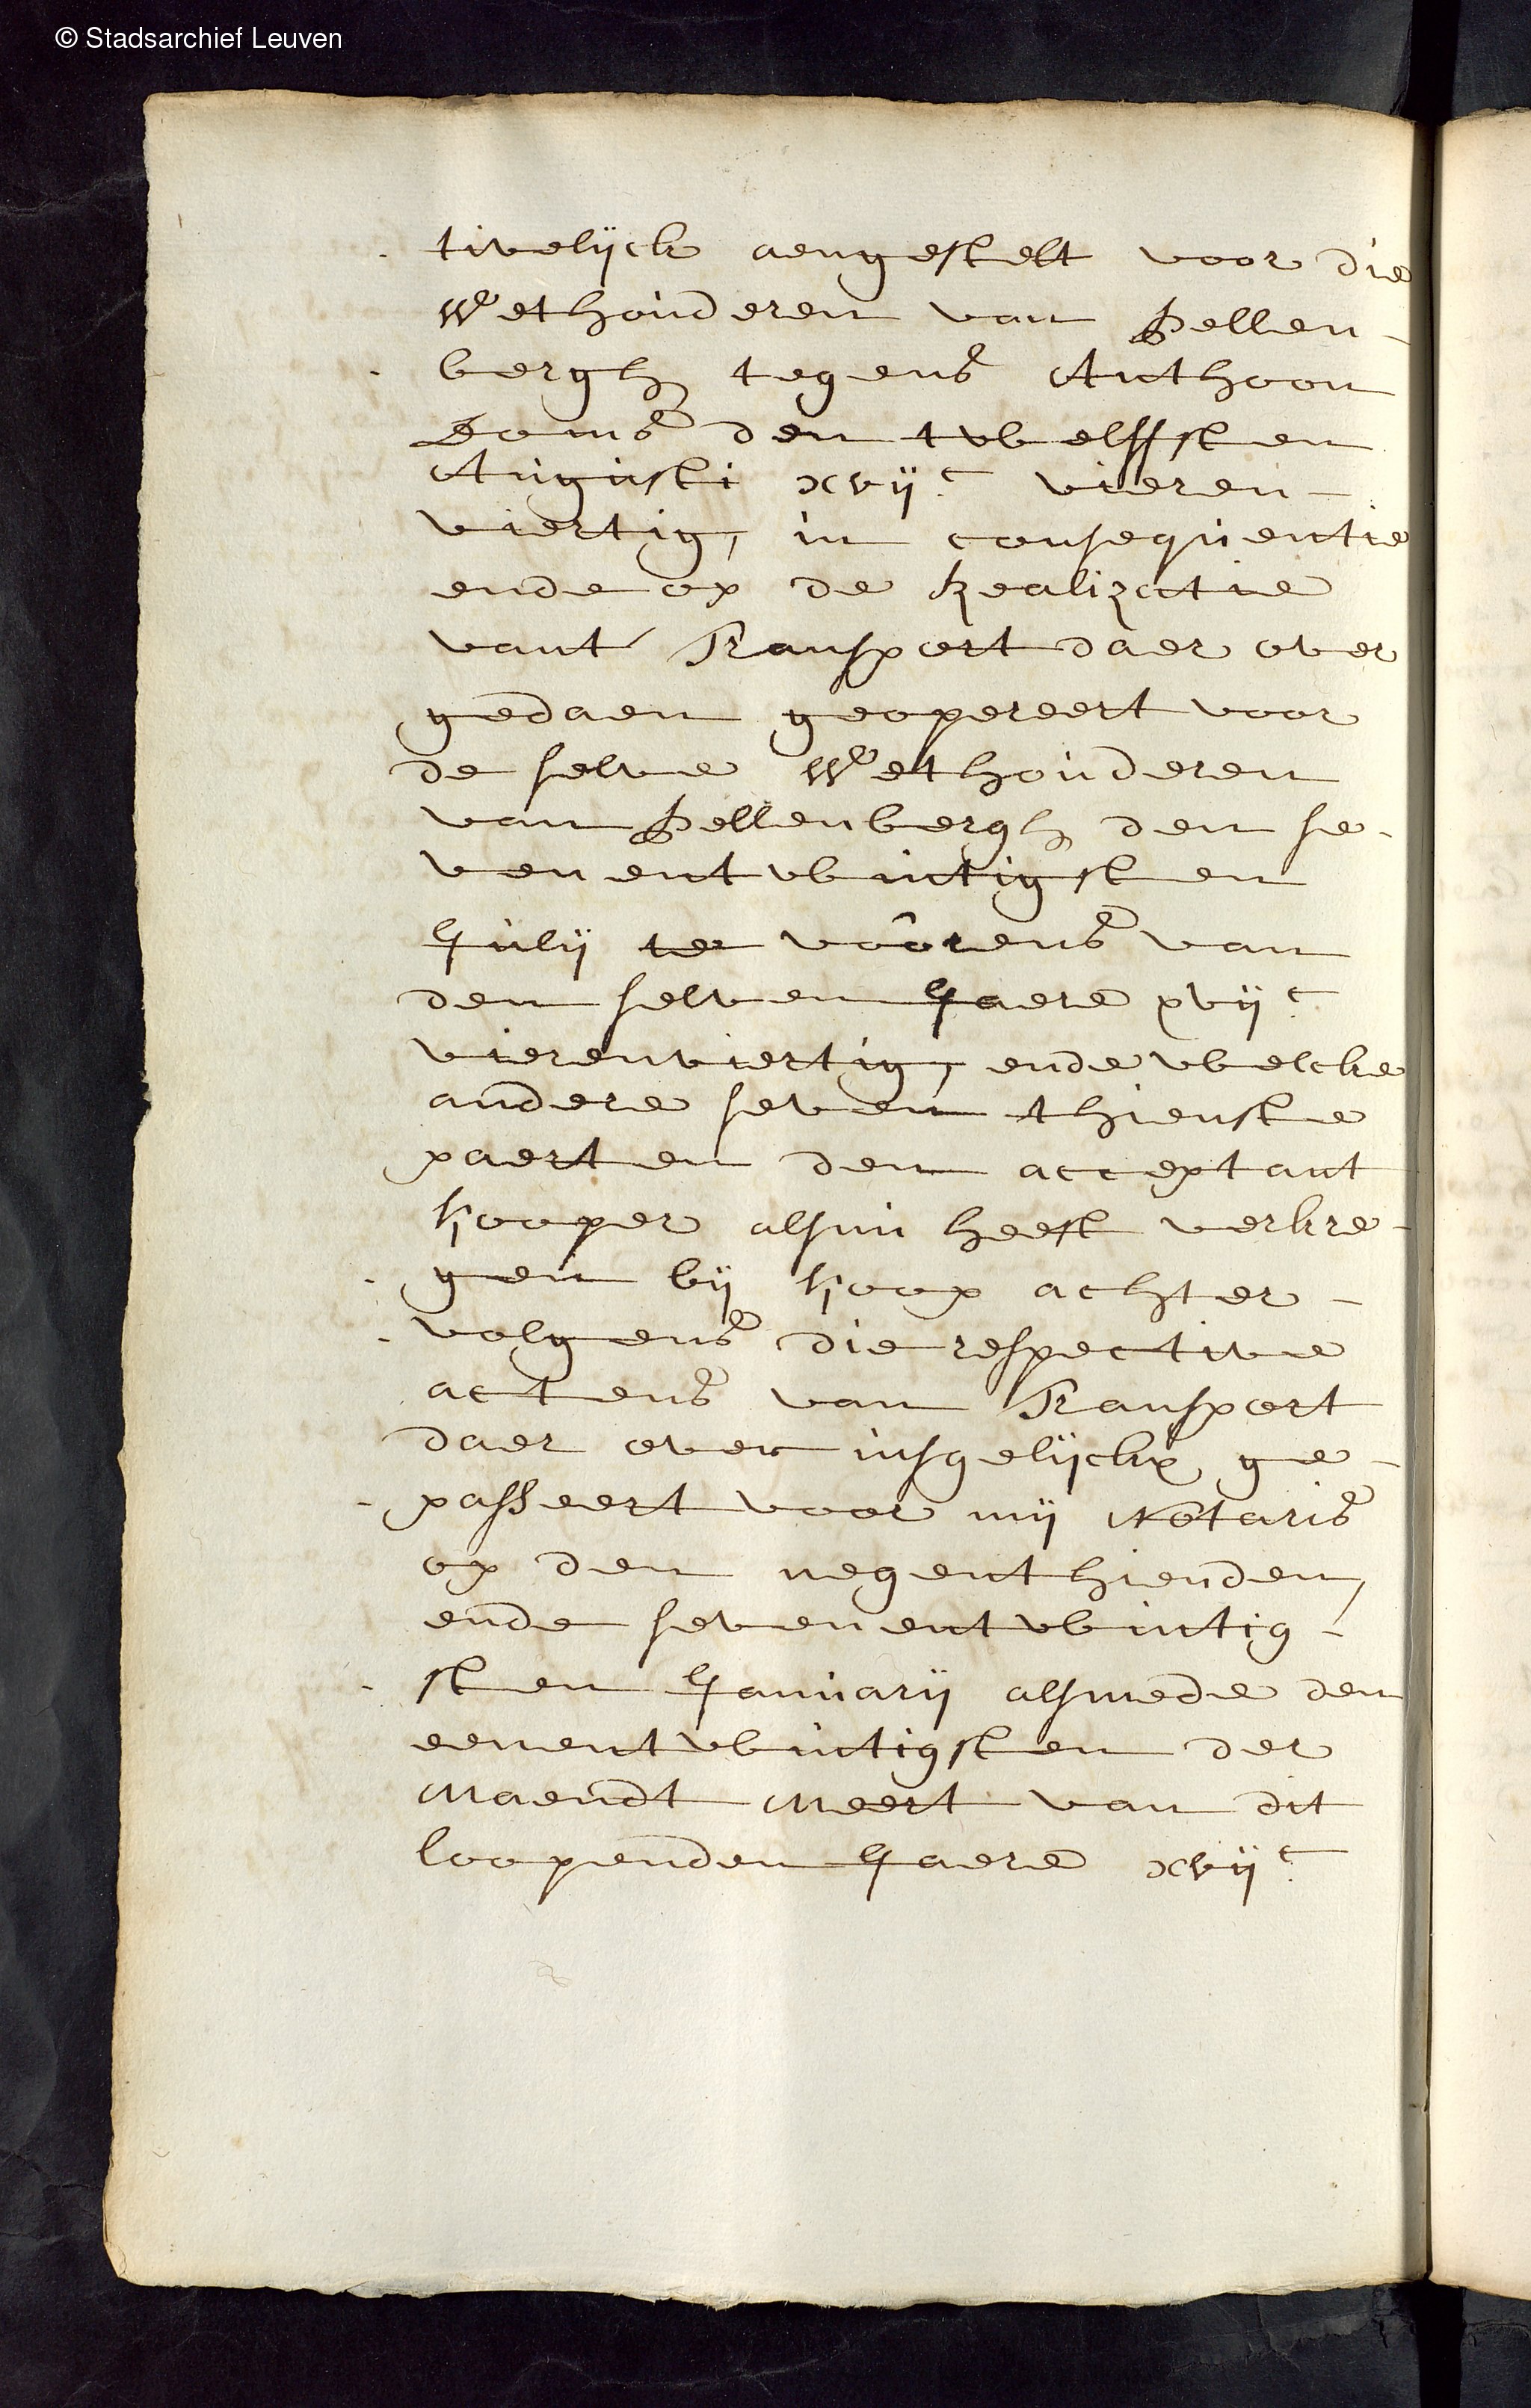 © Stadsarchief Leuven
tivelijck aengestelt voor die
Wethouderen van Pellen-
bergh tegens Anthoon
Doms den twelffsten
Augusti xvijc vieren-
viertig, in consequentie
ende op de Realizatie
vant Transport daer over
gedaen geopereert voor
de selve Wethouderen
van Pellenbergh den se-
venentwintigsten
Julij te voorens van
den selven Jaere xvijc
vierenviertig, ende welcke
andere seven thienste
paerten den acceptant
kooper alsnu heeft verkre-
gen bij koop achter-
volgens die respective
actens van Transport
daer over insgelijckx ge-
passeert voor mij Notaris
op den negenthienden,
ende sevenentwintig-
sten Januarij alsmede den
eenentwintigsten der
Maendt Meert van dit
loopenden Jaere xvijc